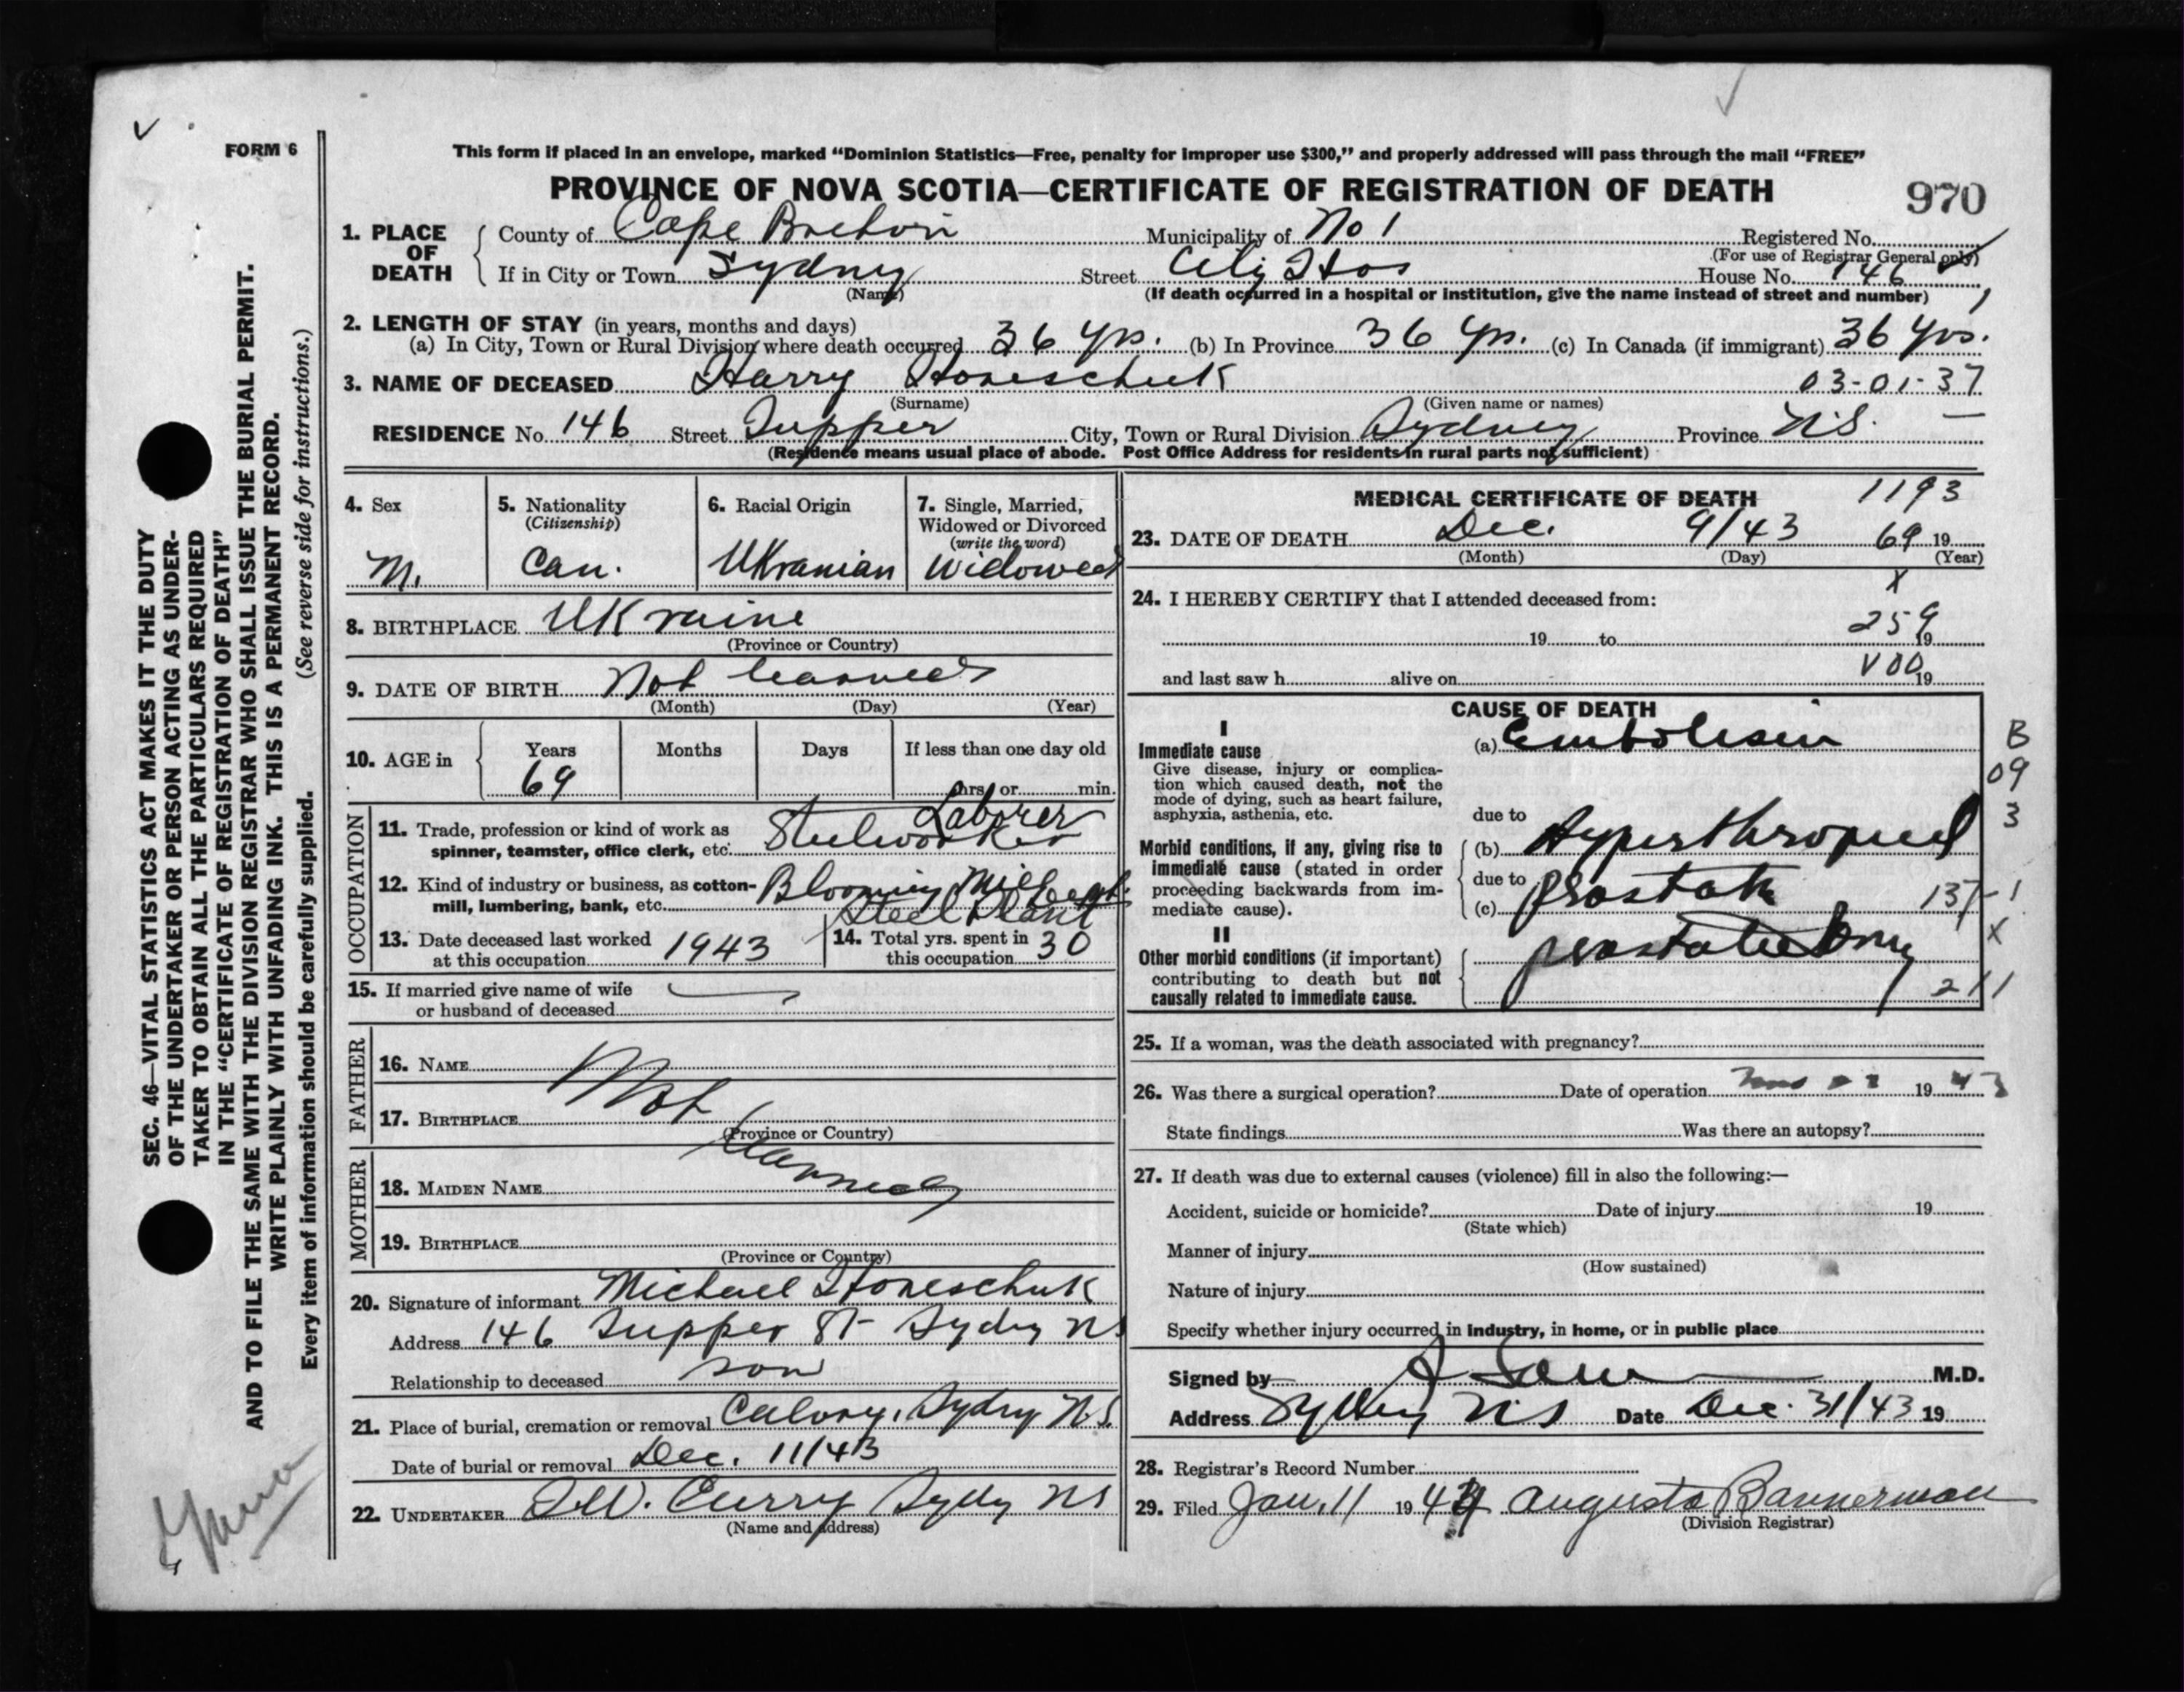 FORM 6
This form if placed in an envelope, marked “Dominion Statistics—Free, penalty for improper use $300,” and properly addressed will pass through the mail “FREE”
PROVINCE OF NOVA SCOTIA—CERTIFICATE OF REGISTRATION OF DEATH
970
1. PLACE OF DEATH
County of Cape Breton Municipality of No 1 Registered No.
(For use of Registrar General only)
If in City or Town Sydney Street City Hos House No. 146
(Name) (If death occurred in a hospital or institution, give the name instead of street and number)
2. LENGTH OF STAY (in years, months and days)
(a) In City, Town or Rural Division where death occurred 36 yrs. (b) In Province 36 yrs. (c) In Canada (if immigrant) 36 yrs.
3. NAME OF DECEASED Harry Honeschuk 03-01-37
(Surname) (Given name or names)
RESIDENCE No 146 Street Tupper City, Town or Rural Division Sydney Province N.S. —
(Residence means usual place of abode. Post Office Address for residents in rural parts not sufficient)
4. Sex
M.
5. Nationality
(Citizenship)
Can.
6. Racial Origin
Ukranian
7. Single, Married,
Widowed or Divorced
(write the word)
Widowed
8. BIRTHPLACE Ukraine
(Province or Country)
9. DATE OF BIRTH Not learned
(Month) (Day) (Year)
10. AGE in Years Months Days If less than one day old
69 hrs. or min.
OCCUPATION
Laborer
11. Trade, profession or kind of work as
spinner, teamster, office clerk, etc. Steelworker
12. Kind of industry or business, as cotton-
mill, lumbering, bank, etc. Blooming Mill Dept.
Steel Plant
13. Date deceased last worked
at this occupation 1943
14. Total yrs. spent in
this occupation 30
15. If married give name of wife
or husband of deceased —
FATHER
16. NAME
Not
17. BIRTHPLACE
(Province or Country)
learned
MOTHER
18. MAIDEN NAME
19. BIRTHPLACE
(Province or Country)
20. Signature of informant Michael Honeschuk
Address 146 Tupper St Sydny NS
Relationship to deceased son
21. Place of burial, cremation or removal Calvary, Sydny N.S.
Date of burial or removal Dec. 11/43
22. UNDERTAKER Curry NS
(Name and address)
MEDICAL CERTIFICATE OF DEATH 1193
23. DATE OF DEATH Dec. 9/43 69 19
(Month) (Day) (Year)
X
24. I HEREBY CERTIFY that I attended deceased from:
19 to 259 19
and last saw h alive on V00 19
CAUSE OF DEATH
I
Immediate cause
Give disease, injury or complica-
tion which caused death, not the
mode of dying, such as heart failure,
asphyxia, asthenia, etc.
(a) Embolism
B
09
3
due to
Morbid conditions, if any, giving rise to
immediate cause (stated in order
proceeding backwards from im-
mediate cause).
(b) Hyperthropied
due to
(c) prostate 137-1
X
II
Other morbid conditions (if important)
contributing to death but not
causally related to immediate cause.
prostatectomy
211
25. If a woman, was the death associated with pregnancy?
26. Was there a surgical operation? Date of operation 19 43
State findings Was there an autopsy?
27. If death was due to external causes (violence) fill in also the following:—
Accident, suicide or homicide? Date of injury 19
(State which)
Manner of injury
(How sustained)
Nature of injury
Specify whether injury occurred in industry, in home, or in public place
Signed by M.D.
Address Sydney N.S Date Dec. 31/43 19
28. Registrar's Record Number
29. Filed Jan. 11 1944 Augusta Bannerman
(Division Registrar)
SEC. 46—VITAL STATISTICS ACT MAKES IT THE DUTY
OF THE UNDERTAKER OR PERSON ACTING AS UNDER-
TAKER TO OBTAIN ALL THE PARTICULARS REQUIRED
IN THE “CERTIFICATE OF REGISTRATION OF DEATH”
AND TO FILE THE SAME WITH THE DIVISION REGISTRAR WHO SHALL ISSUE THE BURIAL PERMIT.
WRITE PLAINLY WITH UNFADING INK. THIS IS A PERMANENT RECORD.
Every item of information should be carefully supplied. (See reverse side for instructions.)